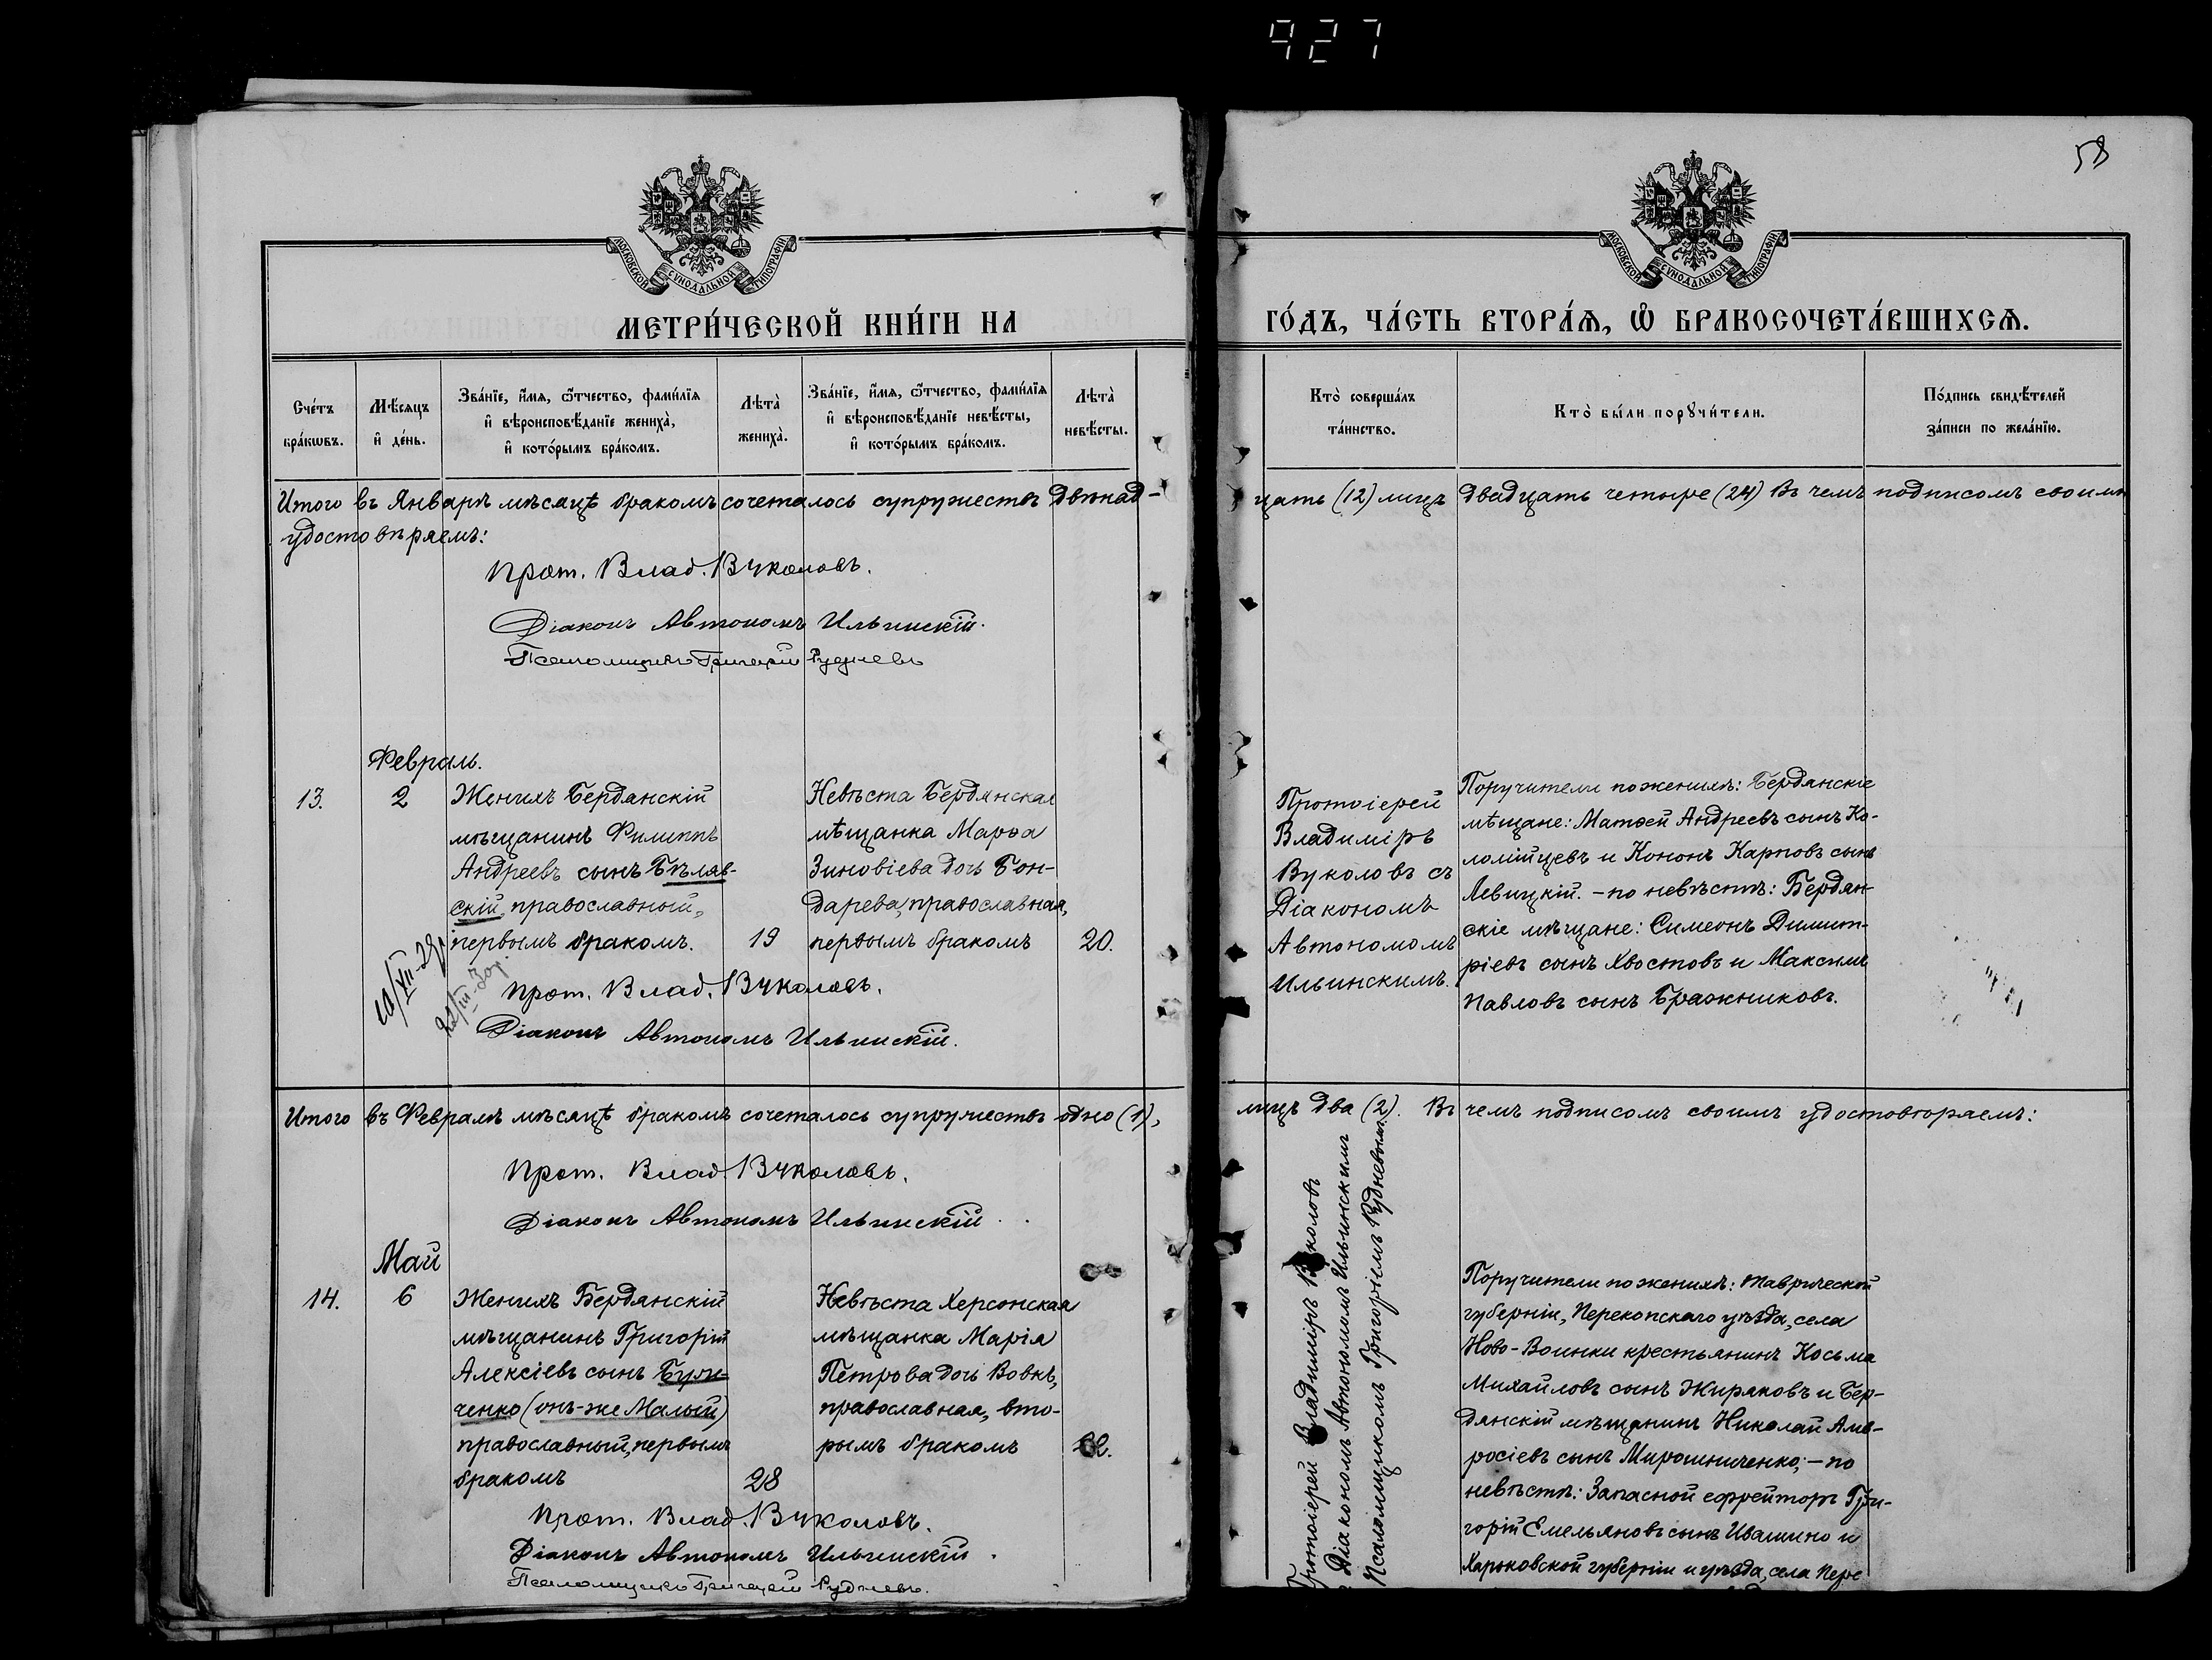 927
58
МОСКОВСКОЙ СѴНОДАЛЬНОЙ ТИПОГРАФІИ
МОСКОВСКОЙ СѴНОДАЛЬНОЙ ТИПОГРАФІИ
МЕТРИ́ЧЕСКОЙ КНИ́ГИ НА
ГО́ДЪ, ЧА́СТЬ ВТОРА́Ѧ, Ѽ БРАКОСОЧЕТА́ВШИХСѦ.
Сче́тъ
бра́кѡвъ.
Мѣ́сяцъ
и҆ де́нь.
Зва́нїе, и҆́мѧ, ѻ҆́тчество, фамѝлїѧ
и҆ вѣроисповѣ́данїе женихà,
и҆ кото́рымъ бра́комъ.
Лѣтà
женихà.
Зва́нїе, и҆́мѧ, ѻ҆́тчество, фамѝлїѧ
и҆ вѣроисповѣ́данїе невѣ́сты,
и҆ кото́рымъ бра́комъ.
Лѣтà
невѣ́сты.
Кто̀ соверша́лъ
та́инство.
Кто̀ бы́ли порꙋчи́тели.
По́дпись свидѣ́телей
за́писи по жела́нїю.
Итого въ Январѣ мѣсяцѣ бракомъ сочеталось супружествъ двѣнад-
цать (12) лицъ двадцать четыре (24) Въ чемъ подписомъ своимъ
удостовѣряемъ:
Прот. Влад. Вуколовъ.
Діаконъ Автономъ Ильинскій.
Псаломщикъ Григорій Рудневъ
Февраль.
13.
2
Женихъ Бердянскій
мѣщанинъ Филиппъ
Андреевъ сынъ Бѣляв-
скій, православный,
первымъ бракомъ.
19
Невѣста Бердянская
мѣщанка Марѳа
Зиновіева дочь Бон-
дарева, православная,
первымъ бракомъ
20.
10/XII-28г.
22/III-30г.
Прот. Влад. Вуколовъ.
Діаконъ Автономъ Ильинскій.
Протоіерей
Владиміръ
Вуколовъ съ
Діакономъ
Автономомъ
Ильинскимъ.
Поручители по женихѣ: Бердянскіе
мѣщане: Матѳей Андреевъ сынъ Ко-
ломійцевъ и Кононъ Карповъ сынъ
Левицкій. - по невѣстѣ: Бердян-
скіе мѣщане: Симеонъ Димит-
ріевъ сынъ Хвостовъ и Максимъ
Павловъ сынъ Бражниковъ.
Итого въ Февралѣ мѣсяцѣ бракомъ сочеталось супружествъ одно (1),
лицъ два (2). Въ чемъ подписомъ своимъ удостовѣряемъ:
Прот. Влад. Вуколовъ.
Діаконъ Автономъ Ильинскій.
Май
14.
6
Женихъ Бердянскій
мѣщанинъ Григорій
Алексіевъ сынъ
ченко (онъ-же Малый)
православный, первымъ
бракомъ
28
Невѣста Херсонская
мѣщанка Марія
Петрова дочь Вовкъ,
православная, вто-
рымъ бракомъ
Прот. Влад. Вуколовъ.
Діаконъ Автономъ Ильинскій.
Псаломщикъ Григорій Рудневъ.
Протоіерей Владиміръ Вуколовъ
Діакономъ Автономомъ Ильинскимъ
Псаломщикомъ Григоріемъ Рудневымъ.
Поручители по женихѣ: Таврической
губерніи, Перекопскаго уѣзда, села
Ново-Воинки крестьянинъ Косьма
Михайловъ сынъ Жиряковъ и Бер-
дянскій мѣщанинъ Николай Амв-
росіевъ сынъ Мирошниченко; - по
невѣстѣ: Запасной ефрейторъ Гри-
горій Емельяновъ сынъ Ивашино и
Харьковской губерніи и уѣзда, села Пере